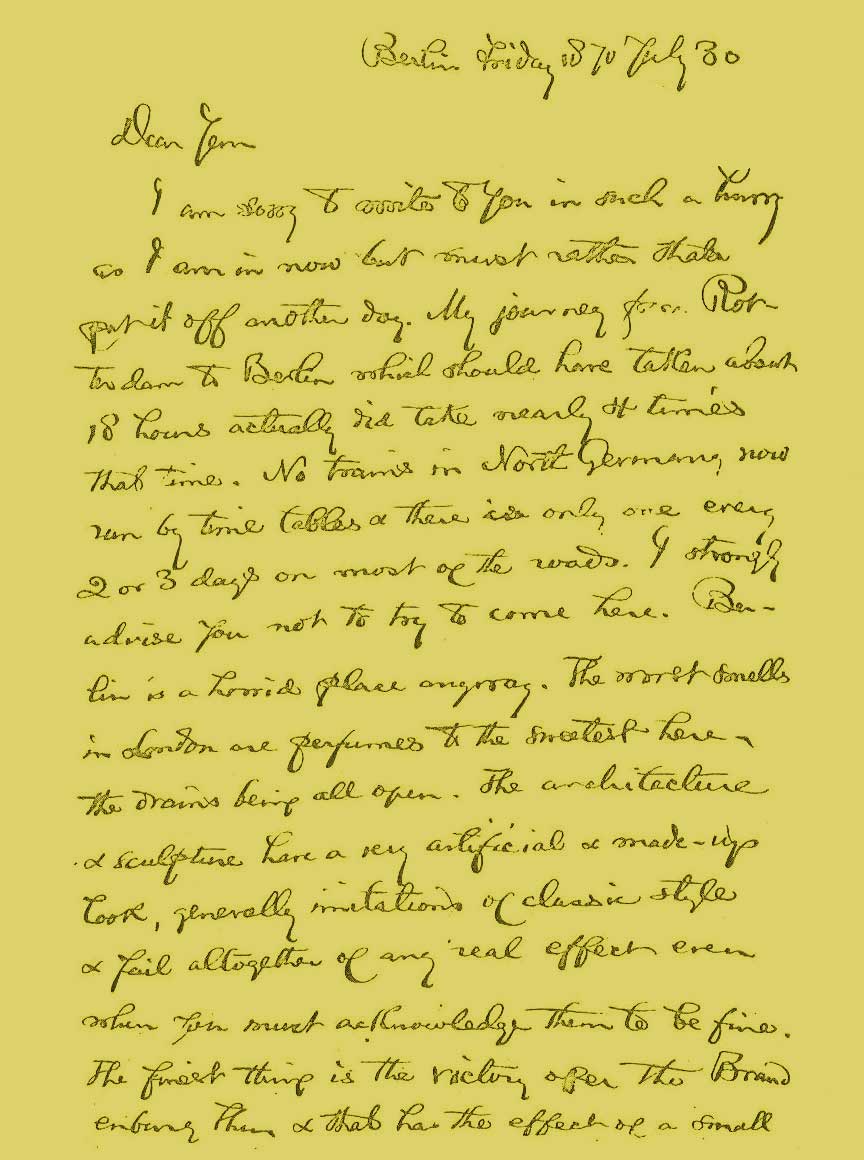 Berlin Friday 1870 July 30
Dear Jem
I am sorry to write to you in such a hurry
as I am in now but must rather than
put it off another day. My journey from Rot-
terdam to Berlin which should have taken about
18 hours actually did take nearly 4 times
that time. No trains in North Germany now
run by time tables & there is only one every
2 or 3 days on most of the roads. I strongly
advise you not to try to come here. Ber-
lin is a horrid place anyway. The worst smells
in London are perfumes to the sweetest here -
the drains being all open. The architecture
& sculpture have a very artificial & made-up
look, generally imitations of classic style
& fail altogether of any real effect even
when you must acknowledge them to be fine.
The finest thing is the victory over the Brand
enburg Thur & that has the effect of a small